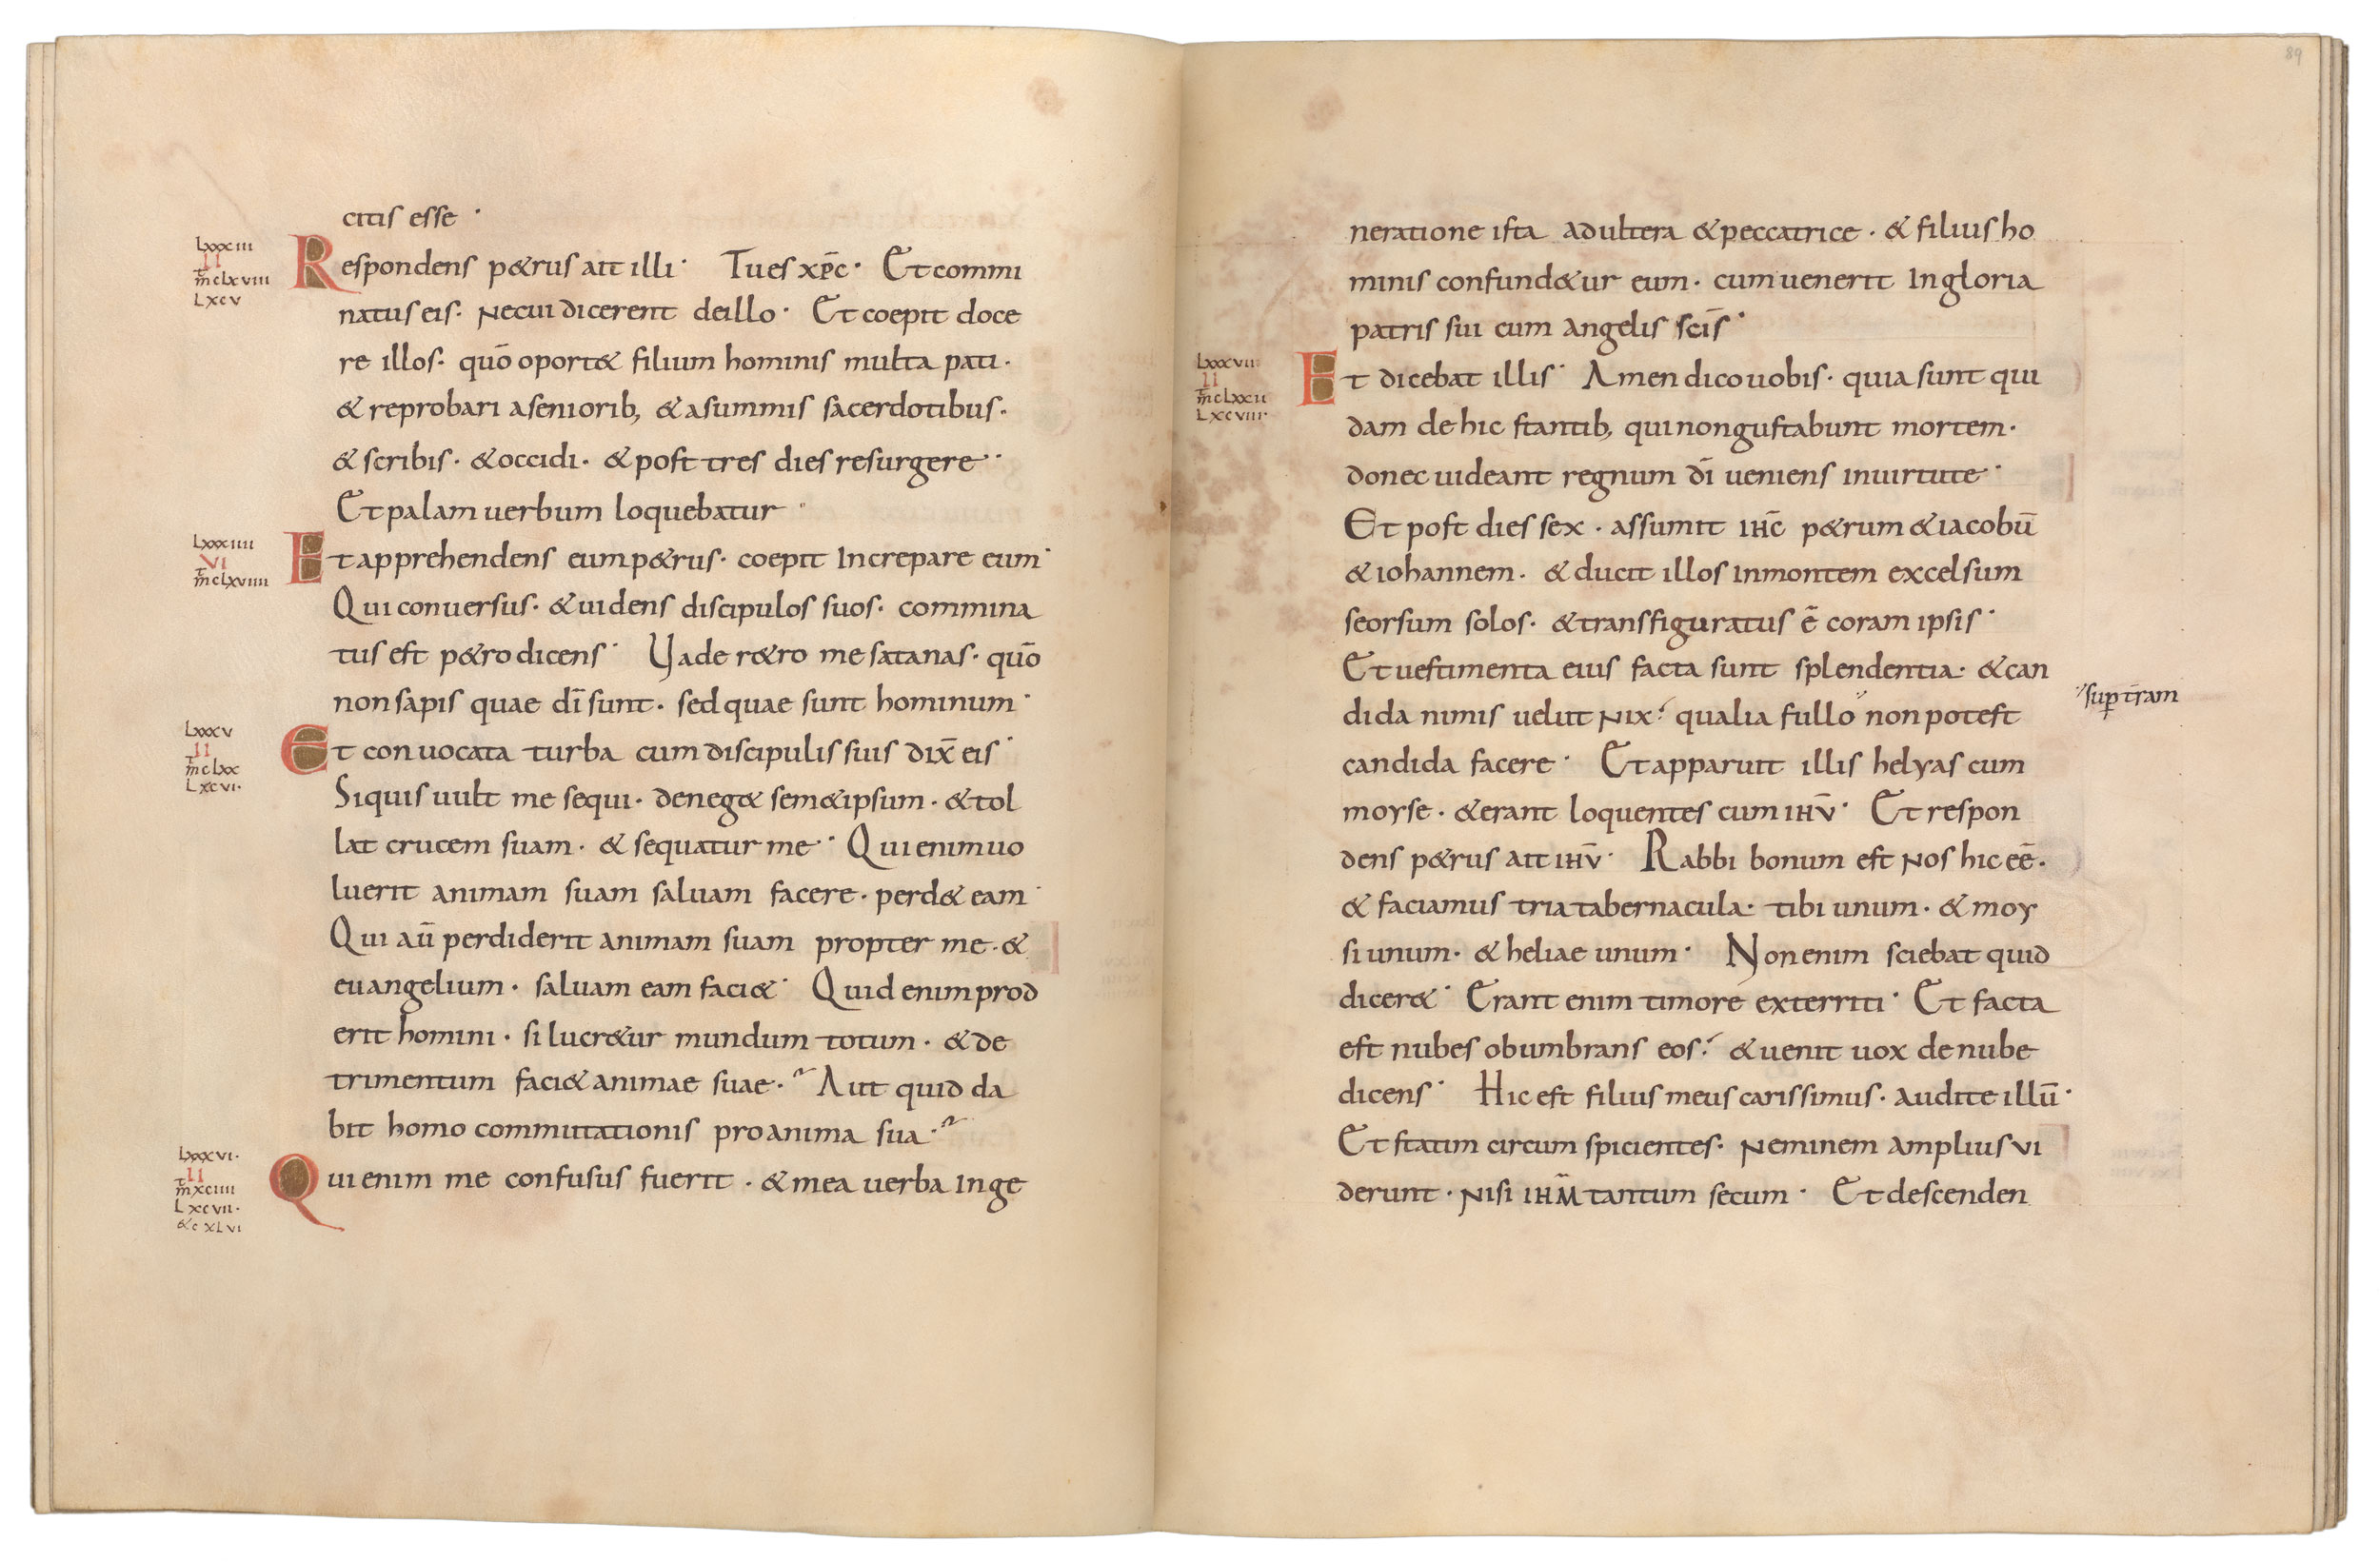 citis esse ·
Lxxxiii
II
mt clxviii
Lxcv
Respondens p&rus ait illi · Tu es xp̄c · Et commi
natus eis · Ne cui dicerent de illo · Et coepit doce
re illos · quō oport& filium hominis multa pati ·
& reprobari aseniorib; & a summis sacerdotibus ·
& scribis · & occidi · & post tres dies resurgere ·
Et palam uerbum loquebatur ·
Lxxxiiii
VI
mt clxviiii
Et apprehendens eum p&rus · coepit Increpare eum ·
Qui conuersus · & uidens discipulos suos · commina
tus est p&ro dicens · Vade r&ro me satanas · quō
non sapis quae dī sunt · sed quae sunt hominum ·
Lxxxv
II
mt clxx
Lxcvi ·
Et conuocata turba cum discipulis suis dix̄ eis ·
Si quis uult me sequi · deneg& sem&ipsum · & tol
lat crucem suam · & sequatur me · Qui enim uo
luerit animam suam saluam facere · perd& eam ·
Qui aū perdiderit animam suam propter me · &
euangelium · saluam eam faci& · Quid enim prod
erit homini · si lucr&ur mundum totum · & de
trimentum faci& animae suae · Aut quid da
bit homo commutationis pro anima sua ·
Lxxxvi ·
II
mt xciiii
Lxcvii ·
&c xLvi
Qui enim me confusus fuerit · & mea uerba In ge
89
neratione ista adultera & peccatrice · & filius ho
minis confund&ur eum · cum uenerit In gloria
patris sui cum angelis scīs ·
Lxxxvii
II
mt clxxii
Lxcviii ·
Et dicebat illis · Amen dico uobis · quia sunt qui
dam de hic stantib; qui non gustabunt mortem ·
donec uideant regnum dī ueniens in uirtute ·
Et post dies sex · assumit ihc̄ p&rum & iacobū
& iohannem · & ducit illos in montem excelsum
seorsum solos · & transfiguratus ē coram ipsis ·
Et uestimenta eius facta sunt splendentia · & can
dida nimis uelut Nix · qualia fullo non potest
sup̱ tr̄am
candida facere · Et apparuit illis helyas cum
moyse · & erant loquentes cum ihū · Et respon
dens p&rus ait ihū · Rabbi bonum est Nos hic eē ·
& faciamus tria tabernacula · tibi unum · & moy
si unum · & heliae unum · Non enim sciebat quid
dicer& · Erant enim timore exterriti · Et facta
est nubes obumbrans eos · & uenit uox de nube
dicens · Hic est filius meus carissimus · audite illū ·
Et statim circum spicientes · Neminem amplius ui
derunt · Nisi ihm̄ tantum secum · Et descenden